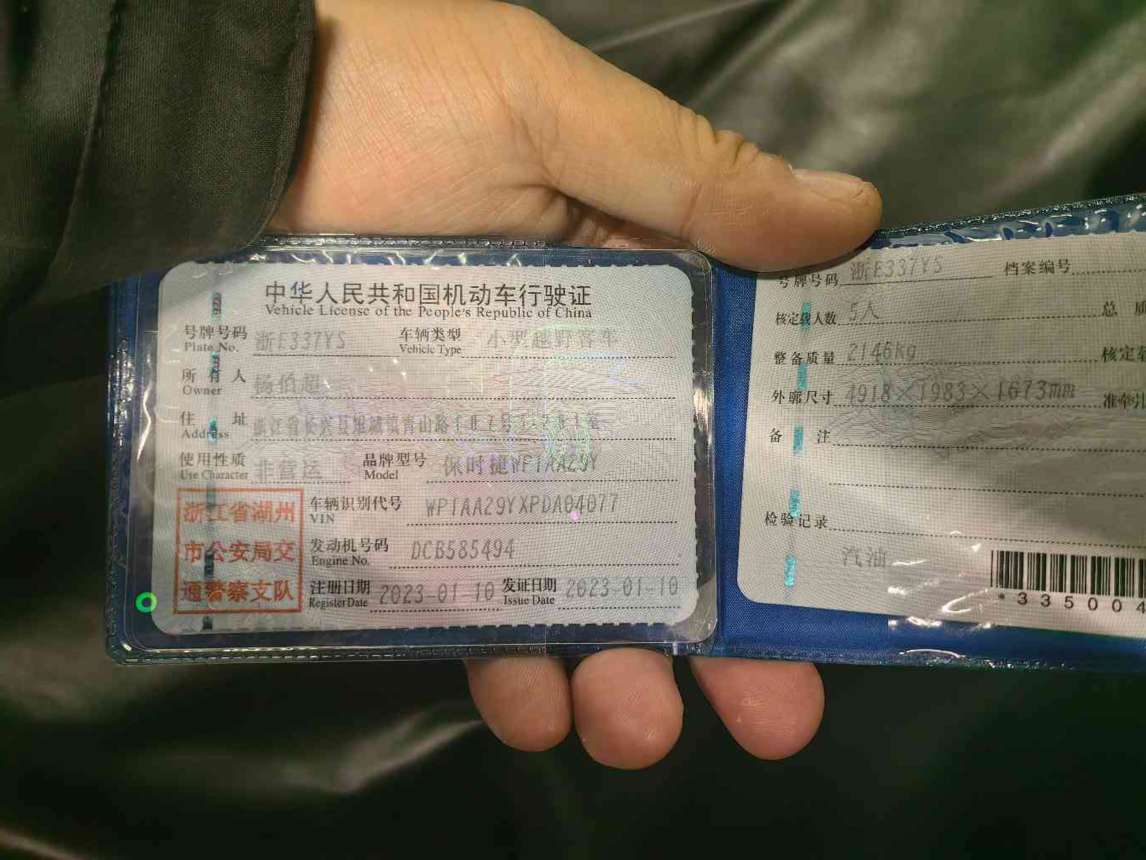 中华人民共和国机动车行驶证
Vehicle License of the People's Republic of China
号牌号码 浙E337YS 车辆类型 小型越野客车
Plate No. Vehicle Type
所有人
Owner
住址 浙江省长兴县雉城镇青山路
Address
使用性质 非营运 品牌型号 保时捷WP1AA29Y
Use Character Model
浙江省湖州
市公安局交
通警察支队
车辆识别代号 WP1AA29YXPDA04077
VIN
发动机号码 DCB585494
Engine No.
注册日期 2023-01-10 发证日期 2023-01-10
Register Date Issue Date
号牌号码 浙E337YS 档案编号
核定载人数 5人 总
整备质量 2146kg 核定
外廓尺寸 4918×1983×1673mm 准牵
备注
检验记录
汽油
*335004